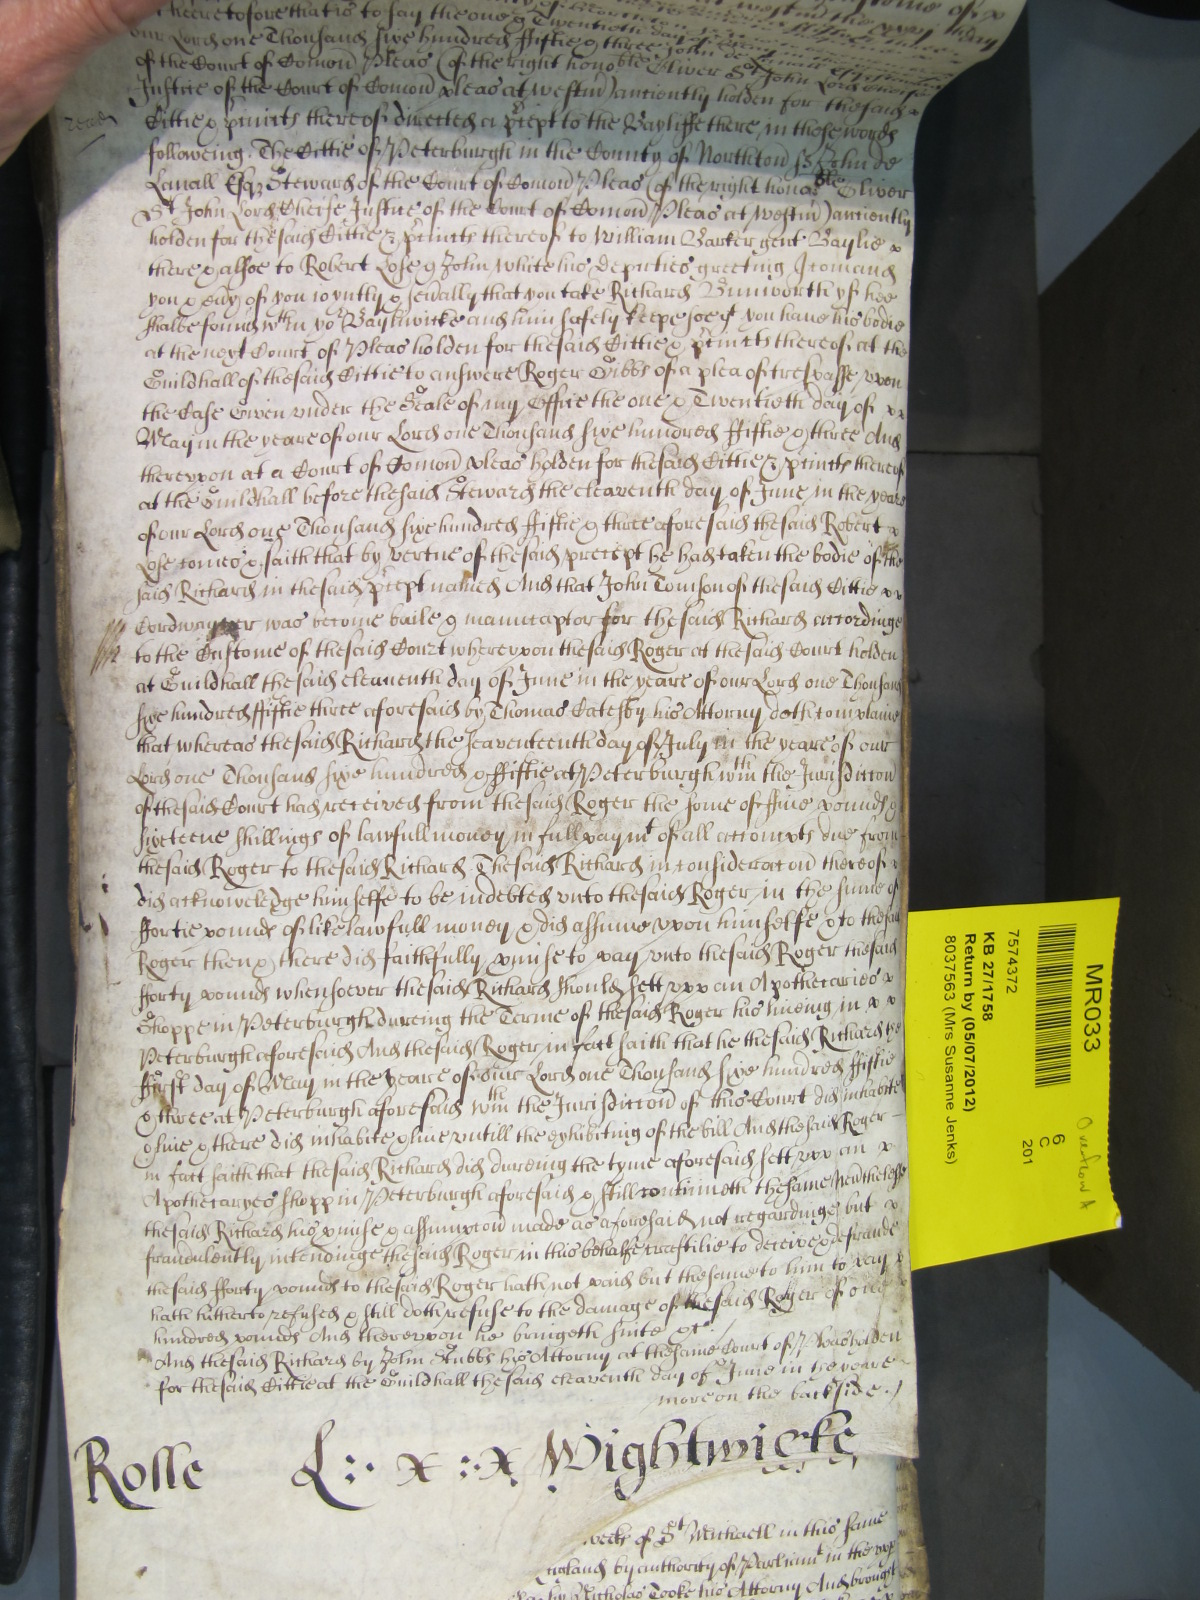 heretofore that is to say the one & Twentieth day of
our Lord one Thousand sixe hundred ffiftie & three John de
of the Court of Comon Pleas (of the right honoble Oliver St John Lord Cheife
Justice of the Court of Comon pleas at Westm) anciently holden for the said x
Cittie & pcincts thereof directed a pcept to the Bayliffe there in these words
followeing. The Cittie of Peterburgh in the County of Northton ss John de
Lavall Esqz Steward of the Court of Comon Pleas (of the right honoble Oliver
St John Lord Cheife Justice of the Court of Comon Pleas at Westm) anciently
holden for the said Cittie & pcincts thereof to William Barker gent Baylie x
there & alsoe to Robert Lose & John White his deputies greeting I comand
you & evy of you ioyntly & sevally that you take Richard Bunworth yf hee
shalbe found wthin yor Baylywicke and him safely keepe soe yt you have his bodie
at the next Court of Pleas holden for the said Cittie & pcincts thereof at the
Guildhall of the said Cittie to answere Roger Gibbs of a plea of trespasse vpon
the Case Given vnder the Seale of my Office the one & Twentieth day of xx
May in the yeare of our Lord one Thousand sixe hundred ffiftie & three And
therevpon at a Court of Comon pleas holden for the said Cittie & pcincts thereof
at the Guildhall before the said Steward the eleaventh day of June in the yeare
of our Lord one Thousand sixe hundred ffiftie & three aforesaid the said Robert x
Lose comes & saith that by vertue of the said precept he had taken the bodie of the
said Richard in the said pcept named And that John Tomson of the said Cittie xx
Cordwayner was become baile & manucaptor for the said Richard accordinge
to the Custome of the said Court wherevpon the said Roger at the said Court holden
at Guildhall the said eleaventh day of June in the yeare of our Lord one Thousand
sixe hundred ffiftie three aforesaid by Thomas Catesby his Attorny doth complaine
that whereas the said Richard the seaventeenth day of July in the yeare of our
Lord one Thousand sixe hundred & ffiftie at Peterburgh wthin the Jurisdiccon
of the said Court had received from the said Roger the some of ffive pounds &
sixteene shillings of lawfull money in full paymt of all accompts due from
the said Roger to the said Richard The said Richard in consideracon thereof x
did acknowledge himselfe to be indebted vnto the said Roger in the summe of
ffortie pounds of like lawfull money & did assume vpon himselfe & to the said
Roger then & there did faithfully pmise to pay vnto the said Roger the said
fforty pounds whensoever the said Richard should sett vpp an Apothecaries x
Shoppe in Peterburgh dureing the Terme of the said Roger his liveing in x x
Peterburgh aforesaid And the said Roger in fact saith that he the said Richard the
ffirst day of May in the yeare of our Lord one Thousand sixe hundred ffiftie
& three at Peterburgh aforesaid wthin the Jurisdiccon of this Court did inhabite
& live & there did inhabite & live vntill the exhibiting of the bill And the said Roger
in fact saith that the said Richard did dureing the tyme aforesaid sett vpp an x
Apothecaryes shopp in Peterburgh aforesaid & still continueth the same Nevthelesse
the said Richard his pmise & assumpcon made as aforesaid not regardinge but x
fraudulently intendinge the said Roger in this behalfe craftilie to deceive & defraude
the said fforty pounds to the said Roger hath not paid but the same to him to pay x
hath hitherto refused & still doth refuse to the damage of the said Roger of one
hundred pounds And therevpon he bringeth suite &c.
And the said Richard by John Stubbs his Attorny at the same Court of Pleas holden
for the said Cittie at the Guildhall the said eleaventh day of June in the yeare
more on the backside.
Rolle L :· x :·x Wightwicke
weeks of St Michaell in this same
England by authority of Parliamt in the
by Nicholas Cooke his Attorny And brought
MR033
7574372
KB 27/1758
Return by (05/07/2012)
8037563 (Mrs Susanne Jenks)
6
C
201